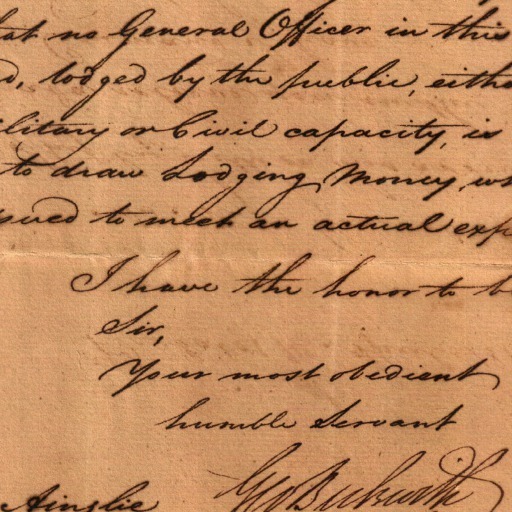 hat no General Officer in this
d, lodged by the public, eithe
ilitary or Civil capacity, is
to draw Lodging Money, wh
sued to meet an actual exp
I have the honor to be
Sir,
Your most obedient
humble Servant
Geo Beckwith
Ainslie